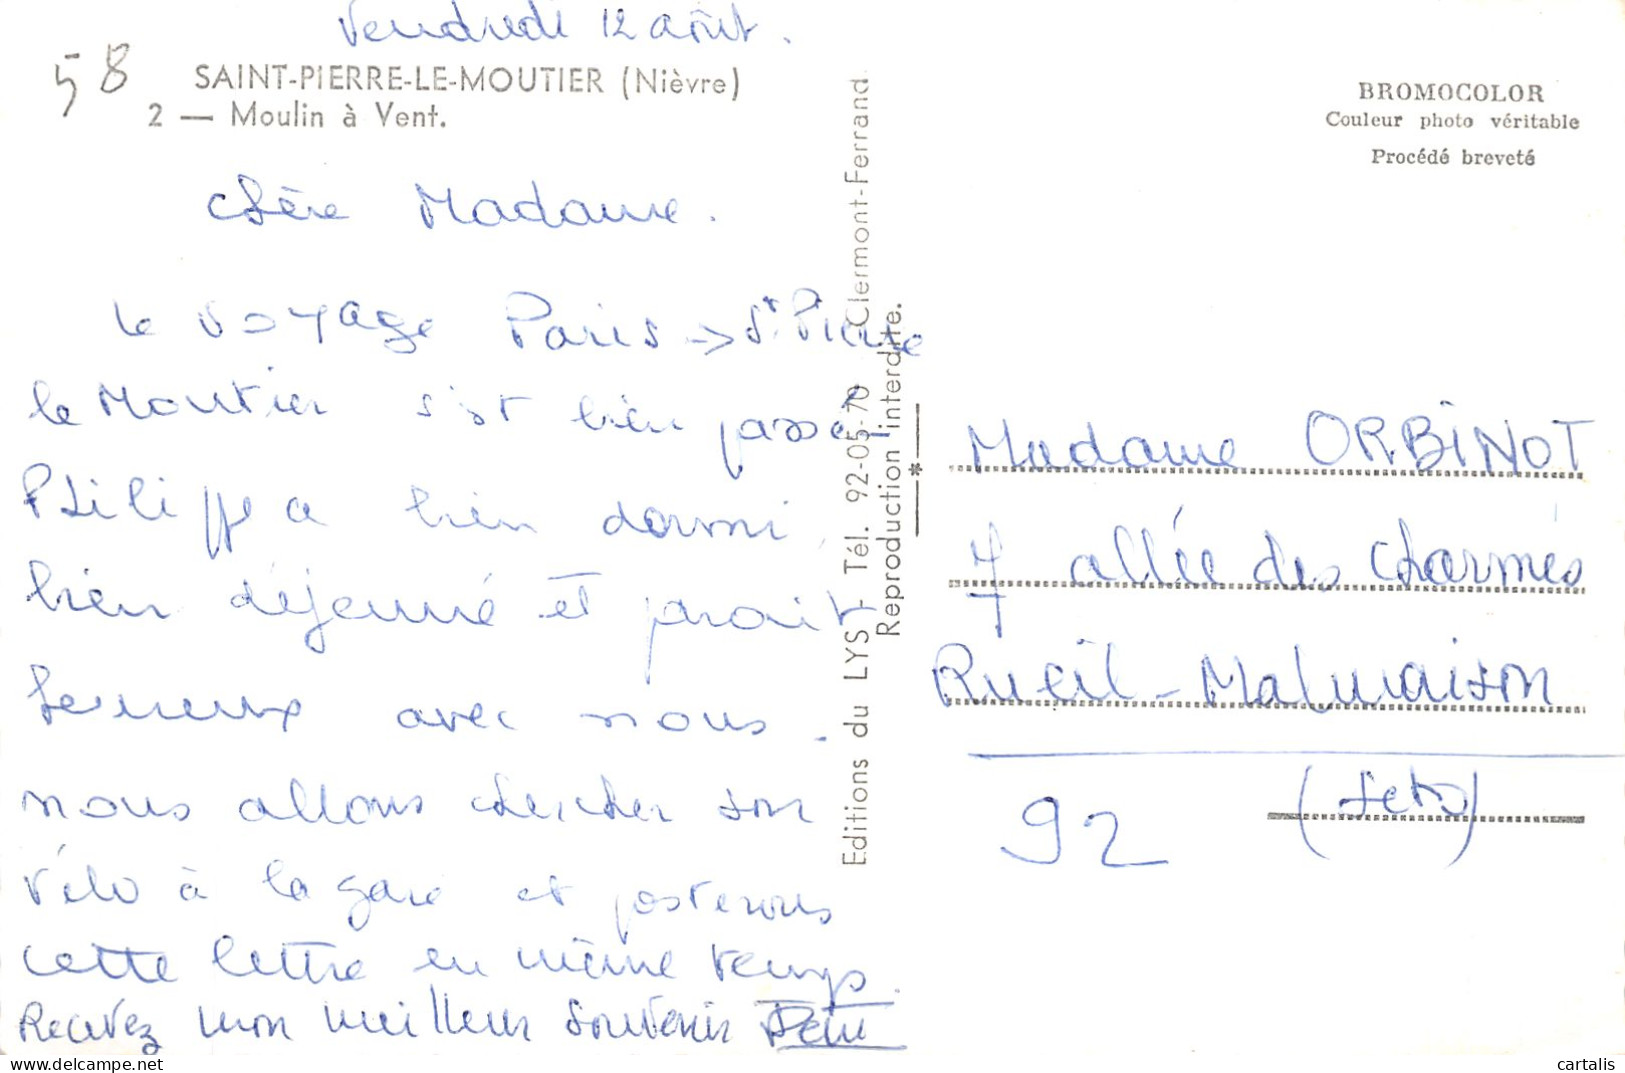 Vendredi 12 août.
58
SAINT-PIERRE-LE-MOUTIER (Nièvre)
2 — Moulin à Vent.
Chère Madame.
le voyage Paris → St Pierre
le Moutier s'est bien passé
Philippe a bien dormi,
bien déjeuné et parait
heureux avec nous.
nous allons chercher son
vélo à la gare et posterons
cette lettre en même temps.
Recevez mon meilleur souvenir
Editions du LYS - Tél. 92-05-70 Clermont-Ferrand
Reproduction interdite.
BROMOCOLOR
Couleur photo véritable
Procédé breveté
Madame ORBINOT
7 allée des Charmes
Rueil-Malmaison
92
cartalis